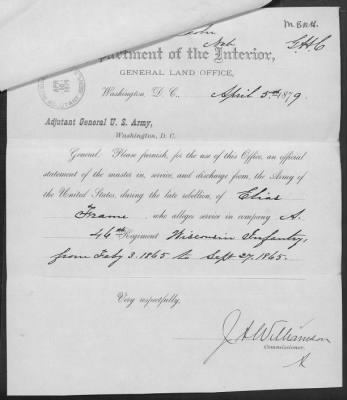 M B H.
Neb G.H.C
partment of the Interior,
GENERAL LAND OFFICE,
Washington, D. C., April 5th, 1879.
Adjutant General U. S. Army,
Washington, D. C.
General: Please furnish, for the use of this Office, an official
statement of the muster in, service, and discharge from, the Army of
the United States, during the late rebellion of Elias
Frame who alleges service in company A.
46th Regiment Wisconsin Infantry,
from Feby 3. 1865 to Sept 27. 1865.
Very respectfully,
J A Williamson
Commissioner.